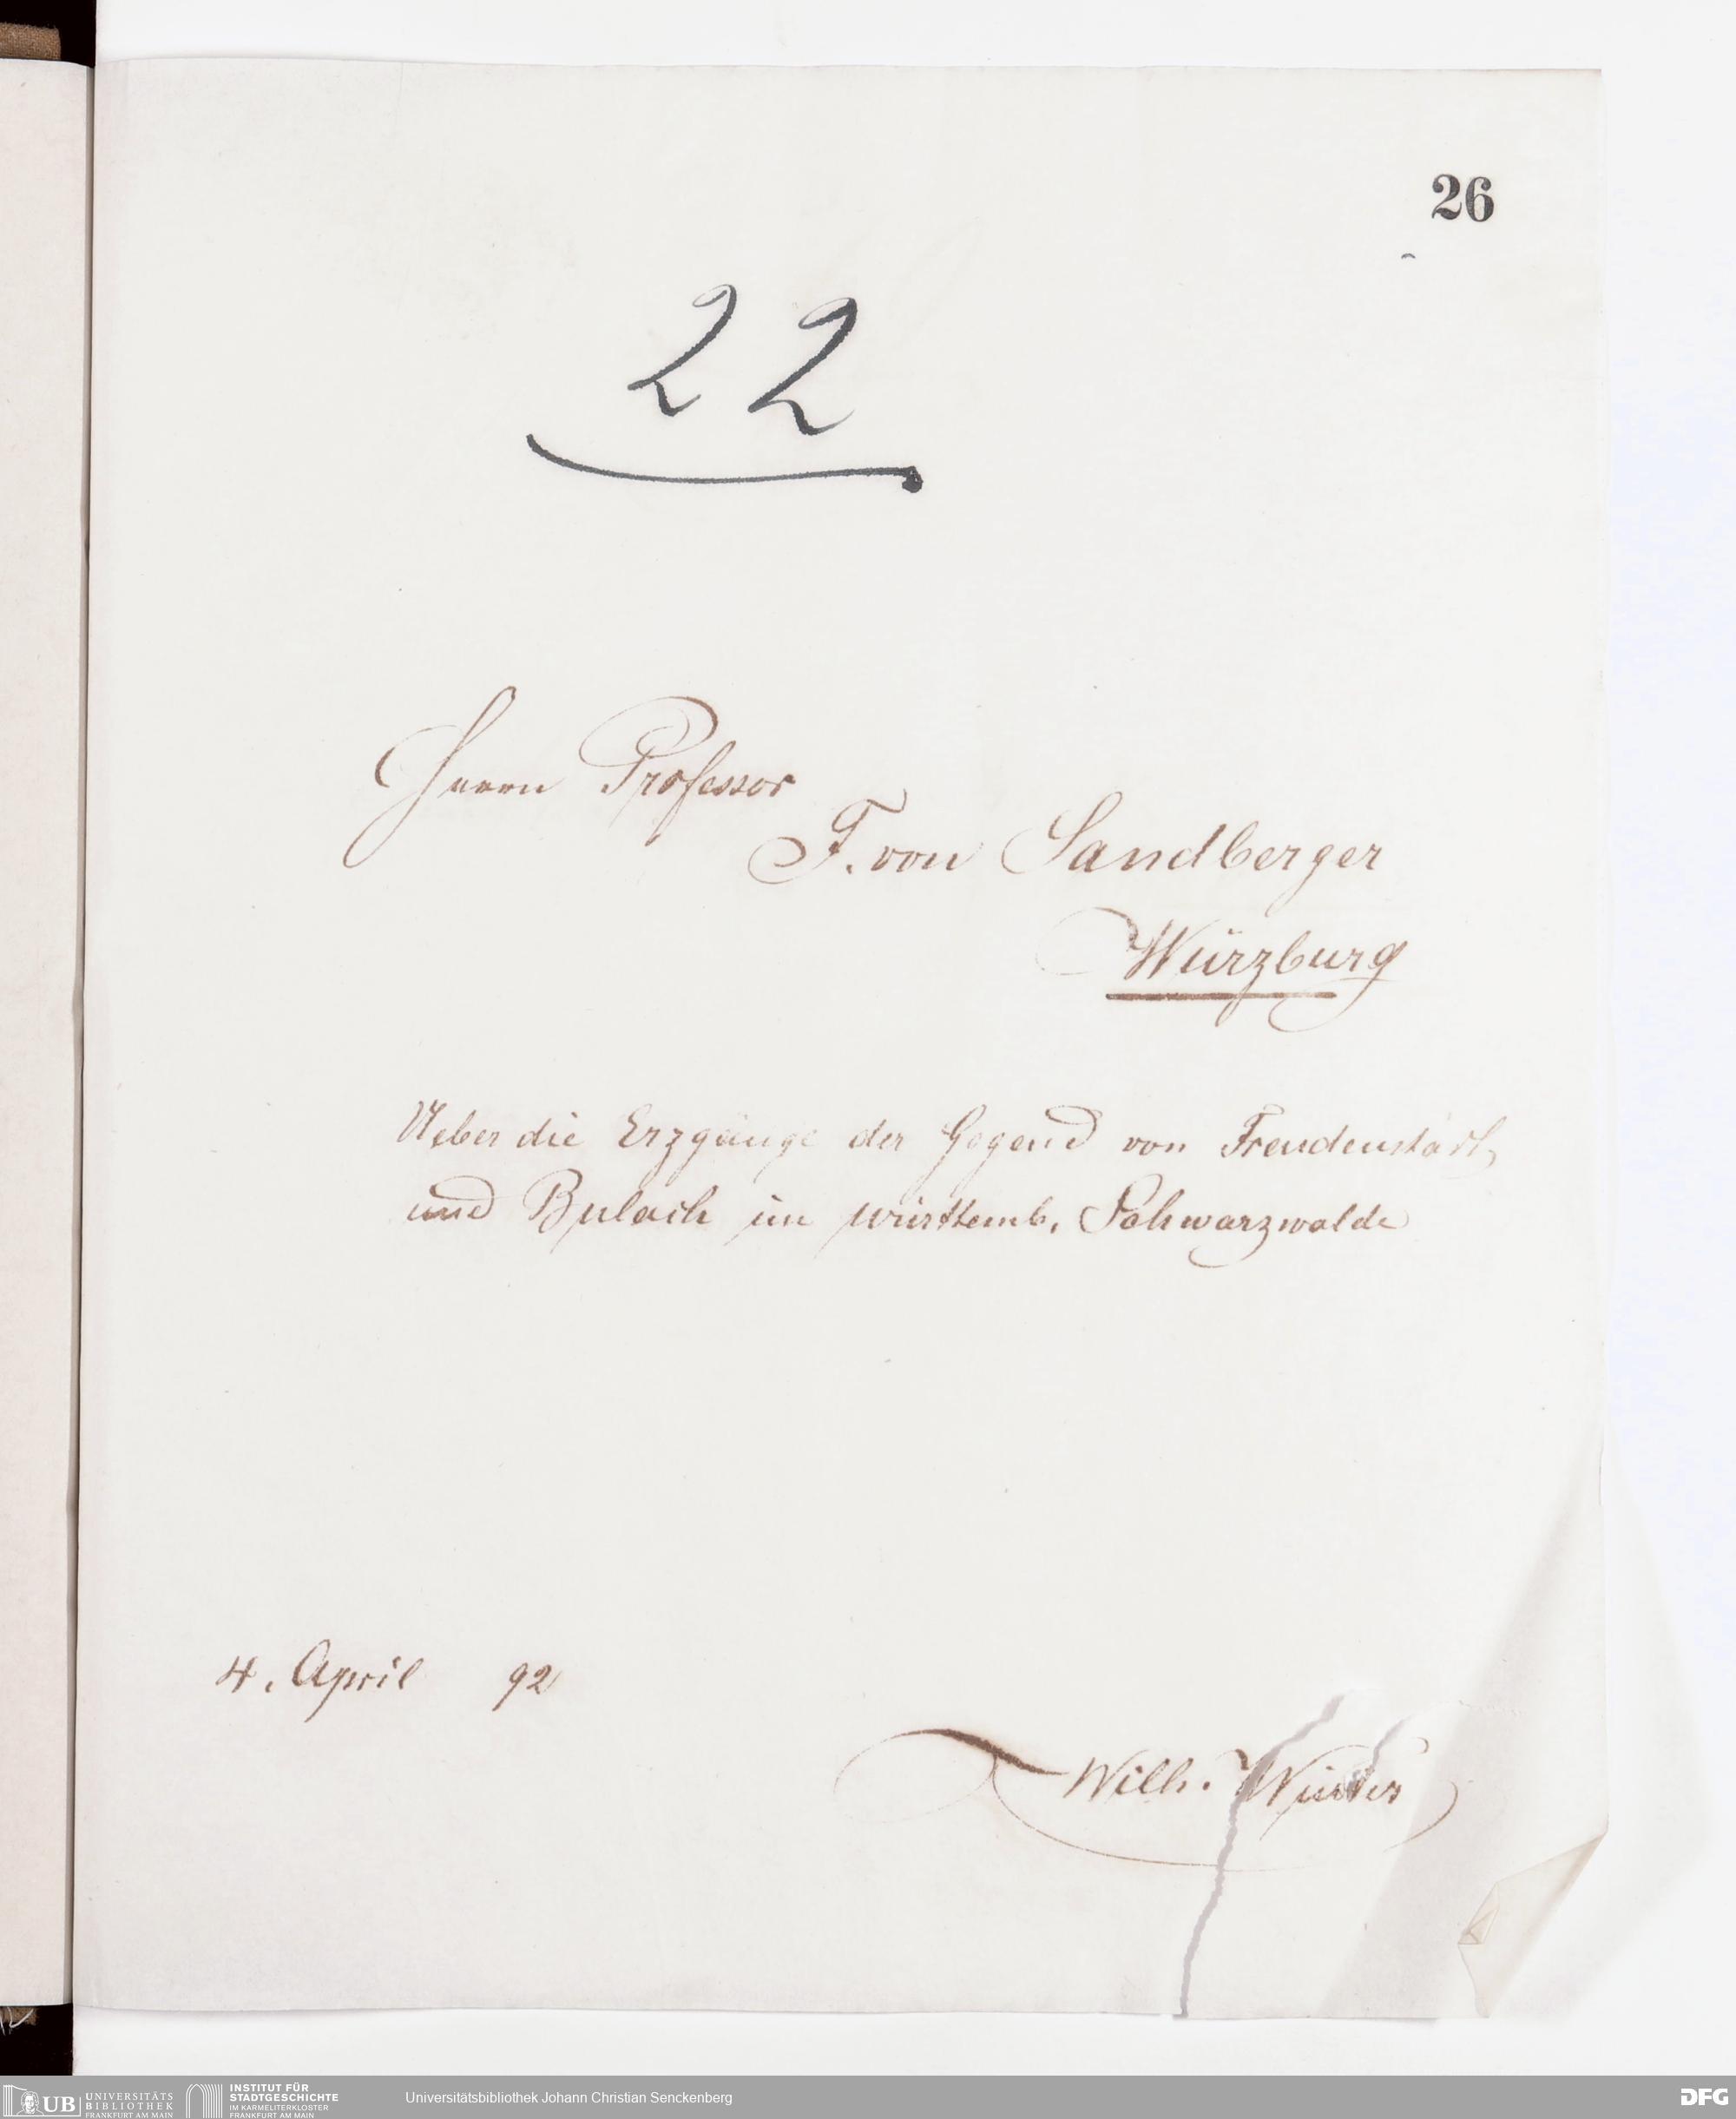 26
22
Herrn Professor
F. von Sandberger
Würzburg
Ueber die Erzgänge der Gegend von Freudenstadt,
und Bulach im württemb. Schwarzwalde
4. April 92
Wilh. Winter
UB UNIVERSITÄTS
BIBLIOTHEK
FRANKFURT AM MAIN
INSTITUT FÜR
STADTGESCHICHTE
IM KARMELITERKLOSTER
FRANKFURT AM MAIN
Universitätsbibliothek Johann Christian Senckenberg
DFG